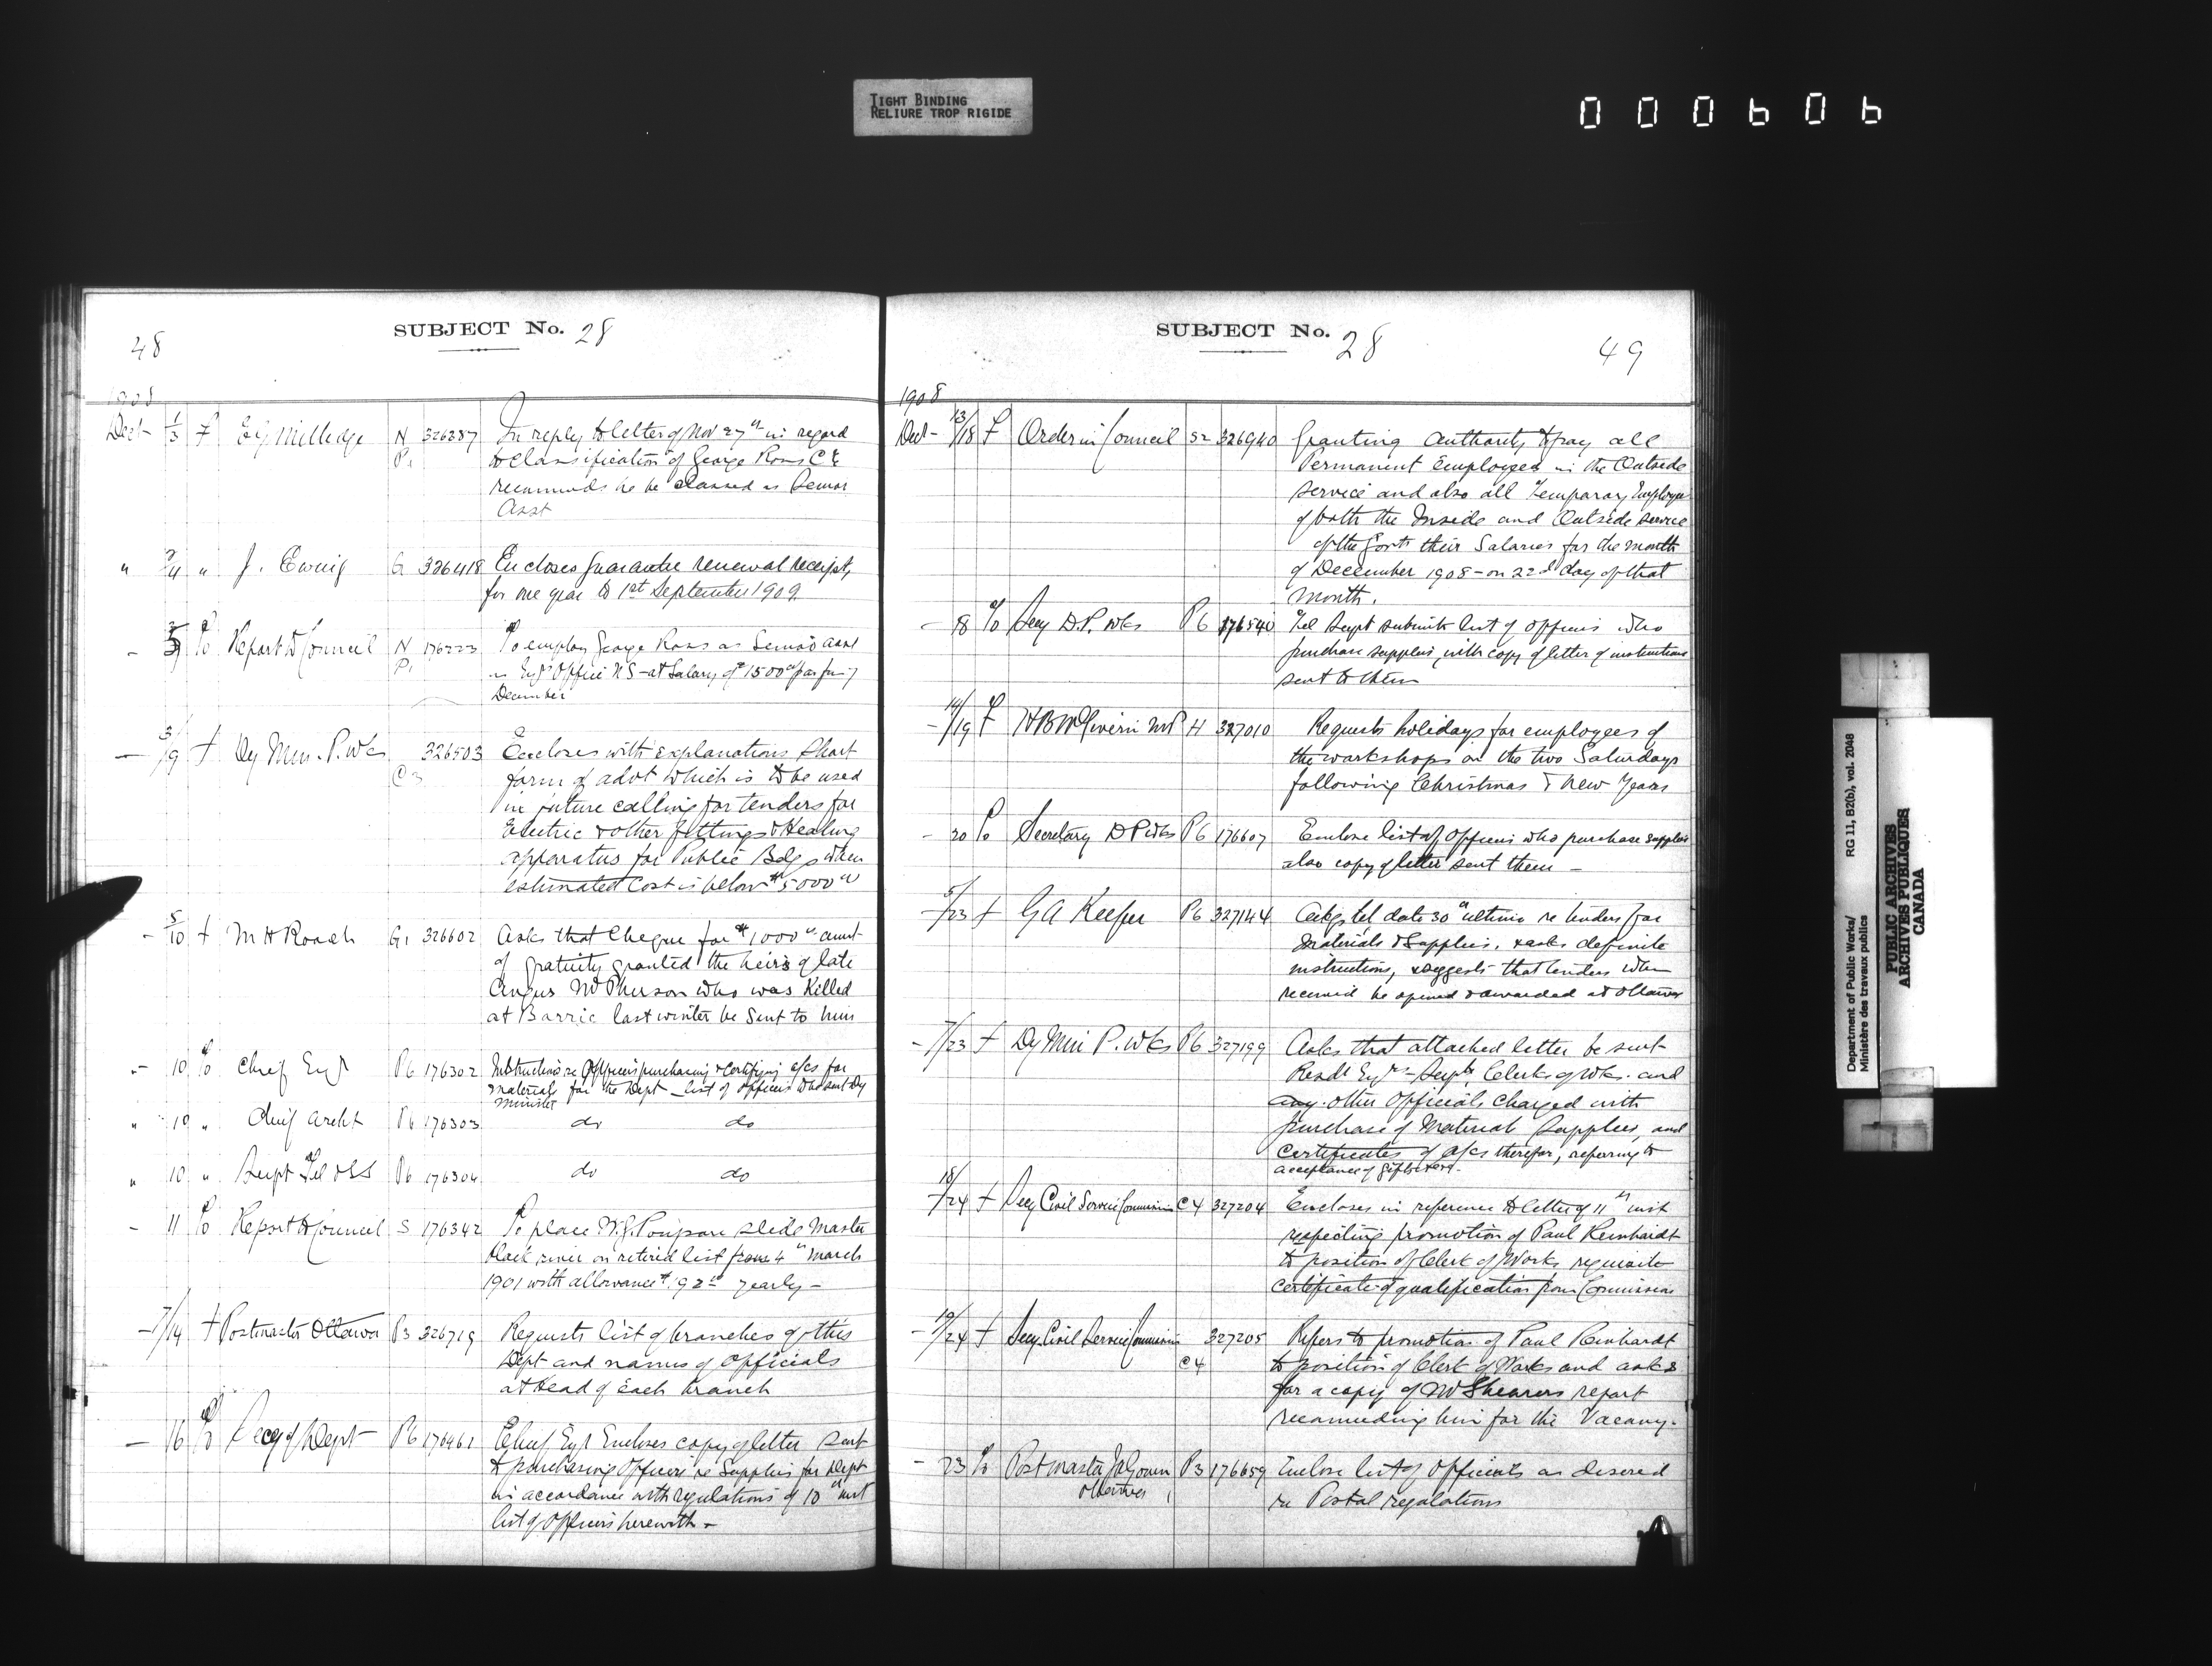 TIGHT BINDING
RELIURE TROP RIGIDE
000606
48
SUBJECT No. 28
1908
Dect - 1/3 F E.G. Milledge N P1 326387 In reply to letter of Nov 27th in regard
to classification of George Ross C.E.
recommends he be classed as Senior
Asst
" 2/4 " J. Ewing G 326418 Encloses Guarantee renewal receipt,
for one year to 1st September 1909.
- Report to Council N P1 176223 To employ George Ross as Senior Asst
in Engrs Office N S - at Salary of $1500 00 par from 7
December
- 3/9 F Dy Min. P. Wks C3 326503 Encloses with explanations Short
form of advt which is to be used
in future calling for tenders for
Electric & other fittings & Heating
apparatus for Public Bdgs when
estimated Cost is below $5000 00
- 5/10 F M H Roach G1 326602 Asks that Cheque for $1000 00 amt
of gratuity granted the heirs of late
Angus McPherson who was Killed
at Barrie last winter be sent to him
- 10 To Chief Engr P6 176302 Instructions re Officers purchasing & certifying a/cs for
materials for the Dept - list of officers who sent Dy
Minister
" 10 " Chief Archt P6 176303 do do
" 10 " Supt Tel & SS P6 176304 do do
- 11 To Report to Council S 176342 To place W. J. Poupore slide Master
black river on retired list from 4th March
1901 with allowance $192 yearly -
- 7/14 F Postmaster Ottawa P3 326719 Requests list of branches of this
Dept and names of Officials
at Head of Each branch
- 16 To Secy of Dept P6 176461 Chief Engr Encloses copy of letter sent
to purchasing Officers re Supplies for Dept
in accordance with regulations of 10th inst
list of Officers herewith -
SUBJECT No. 28
49
1908
Dect - 13/18 F Order in Council S2 326940 Granting Authority to pay all
Permanent Employees in the Outside
service and also all Temporary Employees
of both the Inside and Outside service
of the Govt their Salaries for the month
of December 1908 - on 22d day of that
month.
- 18 To Secy D.P. Wks P6 176540 Tel Supt submits list of officers who
purchase supplies, with copy of letter of instructions
sent to them
- 14/19 F H B McGiverin M P H 327010 Requests holidays for employees of
the workshops on the two Saturdays
following Christmas & New Years
- 20 To Secretary D P Wks P6 176607 Enclose list of Officers who purchase supplies
also copy of letter sent them -
- 5/23 F G A Keefer P6 327144 Ackgs tel date 30th ultimo re tenders for
Materials & Supplies, & asks definite
instructions, & suggests that tenders when
received be opened & awarded at Ottawa
- 7/23 F Dy Min P. Wks P6 327199 Asks that attached letter be sent
Resdt Engrs - Supts, Clerks of Wks. and
any other Officials Charged with
purchase of Material & Supplies, and
Certificates of a/cs therefor, referring to
acceptance of gifts &c.
- 18/24 F Secy Civil Service Commission C4 327204 Encloses in reference to letter of 11th inst
respecting promotion of Paul Reinhardt
to position of Clerk of Works requisite
certificate of qualification from Commission
- 19/24 F Secy Civil Service Commission C4 327205 Refers to promotion of Paul Reinhardt
to position of Clerk of Works and asks
for a copy of Mr Shearers report
recommending him for the Vacancy.
- 23 To Postmaster J A Gouin Ottawa P3 176659 Enclose list of Officials as desired
re Postal regulations
Department of Public Works/ RG 11, B2(b), vol. 2048
Ministère des travaux publics
PUBLIC ARCHIVES
ARCHIVES PUBLIQUES
CANADA